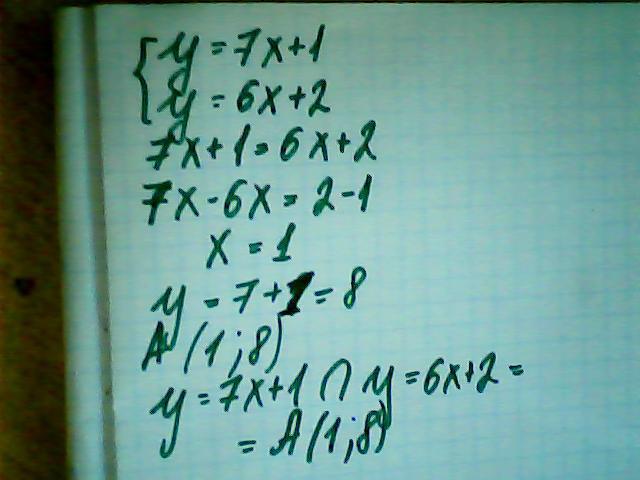 { y = 7x+1
y = 6x+2
7x+1 = 6x+2
7x-6x = 2-1
x = 1
y = 7+1 = 8
A (1;8)
y = 7x+1 ∩ y = 6x+2 =
= A(1;8)